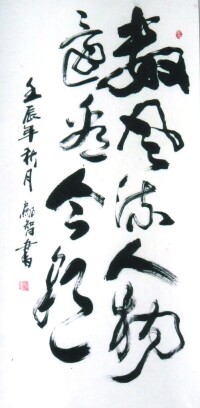 数风流人物
還看今朝
壬辰年秋月 智書